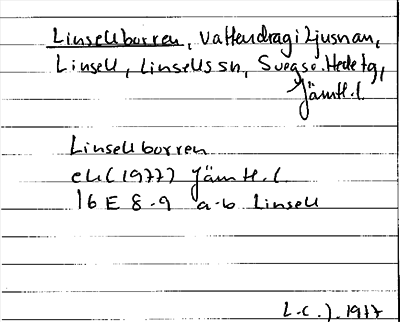 Linsellborren, vattendrag i Ljusnan,
Linsell, Linsells sn, Svegs o. Hede tg,
Jämtl. l.
Linsellborren
ek (1977) Jämtl. l.
16 E 8-9 a-b Linsell
L.C.J. 1977